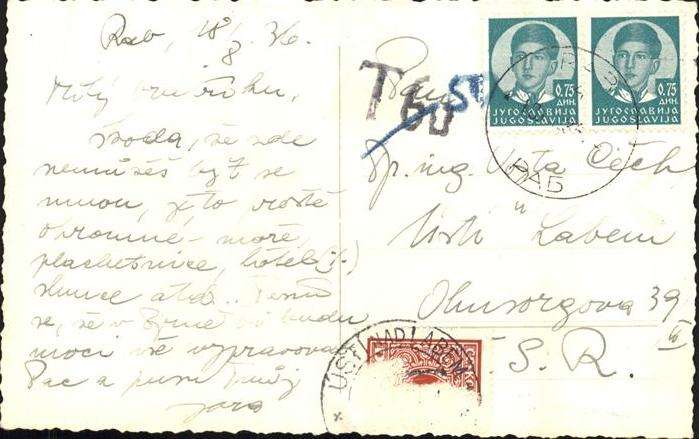 Rab, 18/8 36.
Milý
škoda, že zde
nemůžeš být se
mnou, je to prostě
ohromné - moře,
plachetnice, hotel
slunce atd.. Těším
se, že v Brně budu
moci vše
Pac a pusu Tvůj
Jara
T 60
Pan
ing. Ota Čech
Ústí n Labem
Ohnsorgova 39
Č. S. R.
0.75
ДИН.
ЈУГОСЛАВИЈА
JUGOSLAVIJA
0.75
ДИН.
ЈУГОСЛАВИЈА
JUGOSLAVIJA
РАБ
ÚSTÍ NAD LABEM